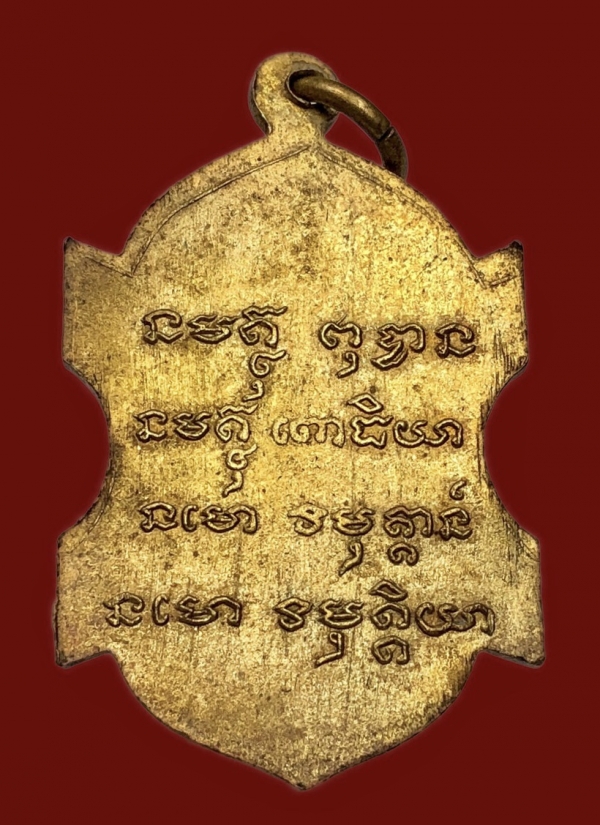 នមត្ថុ ពុទ្ធាន
នមត្ថុ ពោធិយា
នមោ វមុត្តានំ
នមោ វមុត្តិយា